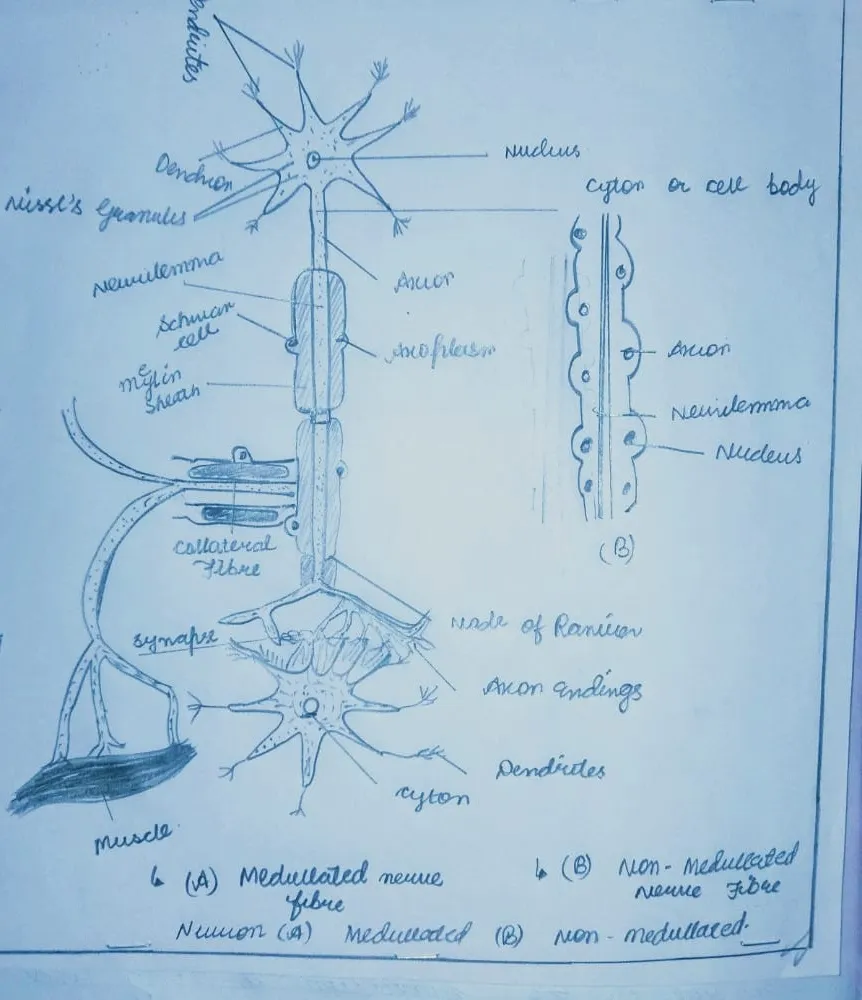 Dendrites
Nucleus
Dendron
Cyton or cell body
Nissl's Granules
Neurilemma
Axon
Schwan
cell
Axoplasm
Axon
Myelin
Sheath
Neurilemma
Nucleus
Collateral
Fibre
(B)
Node of Ranvier
Synapse
Axon endings
Dendrites
Cyton
Muscle
(A) Medullated nerve
fibre
(B) Non-Medullated
Nerve Fibre
Neuron (A) Medullated (B) Non-medullated.